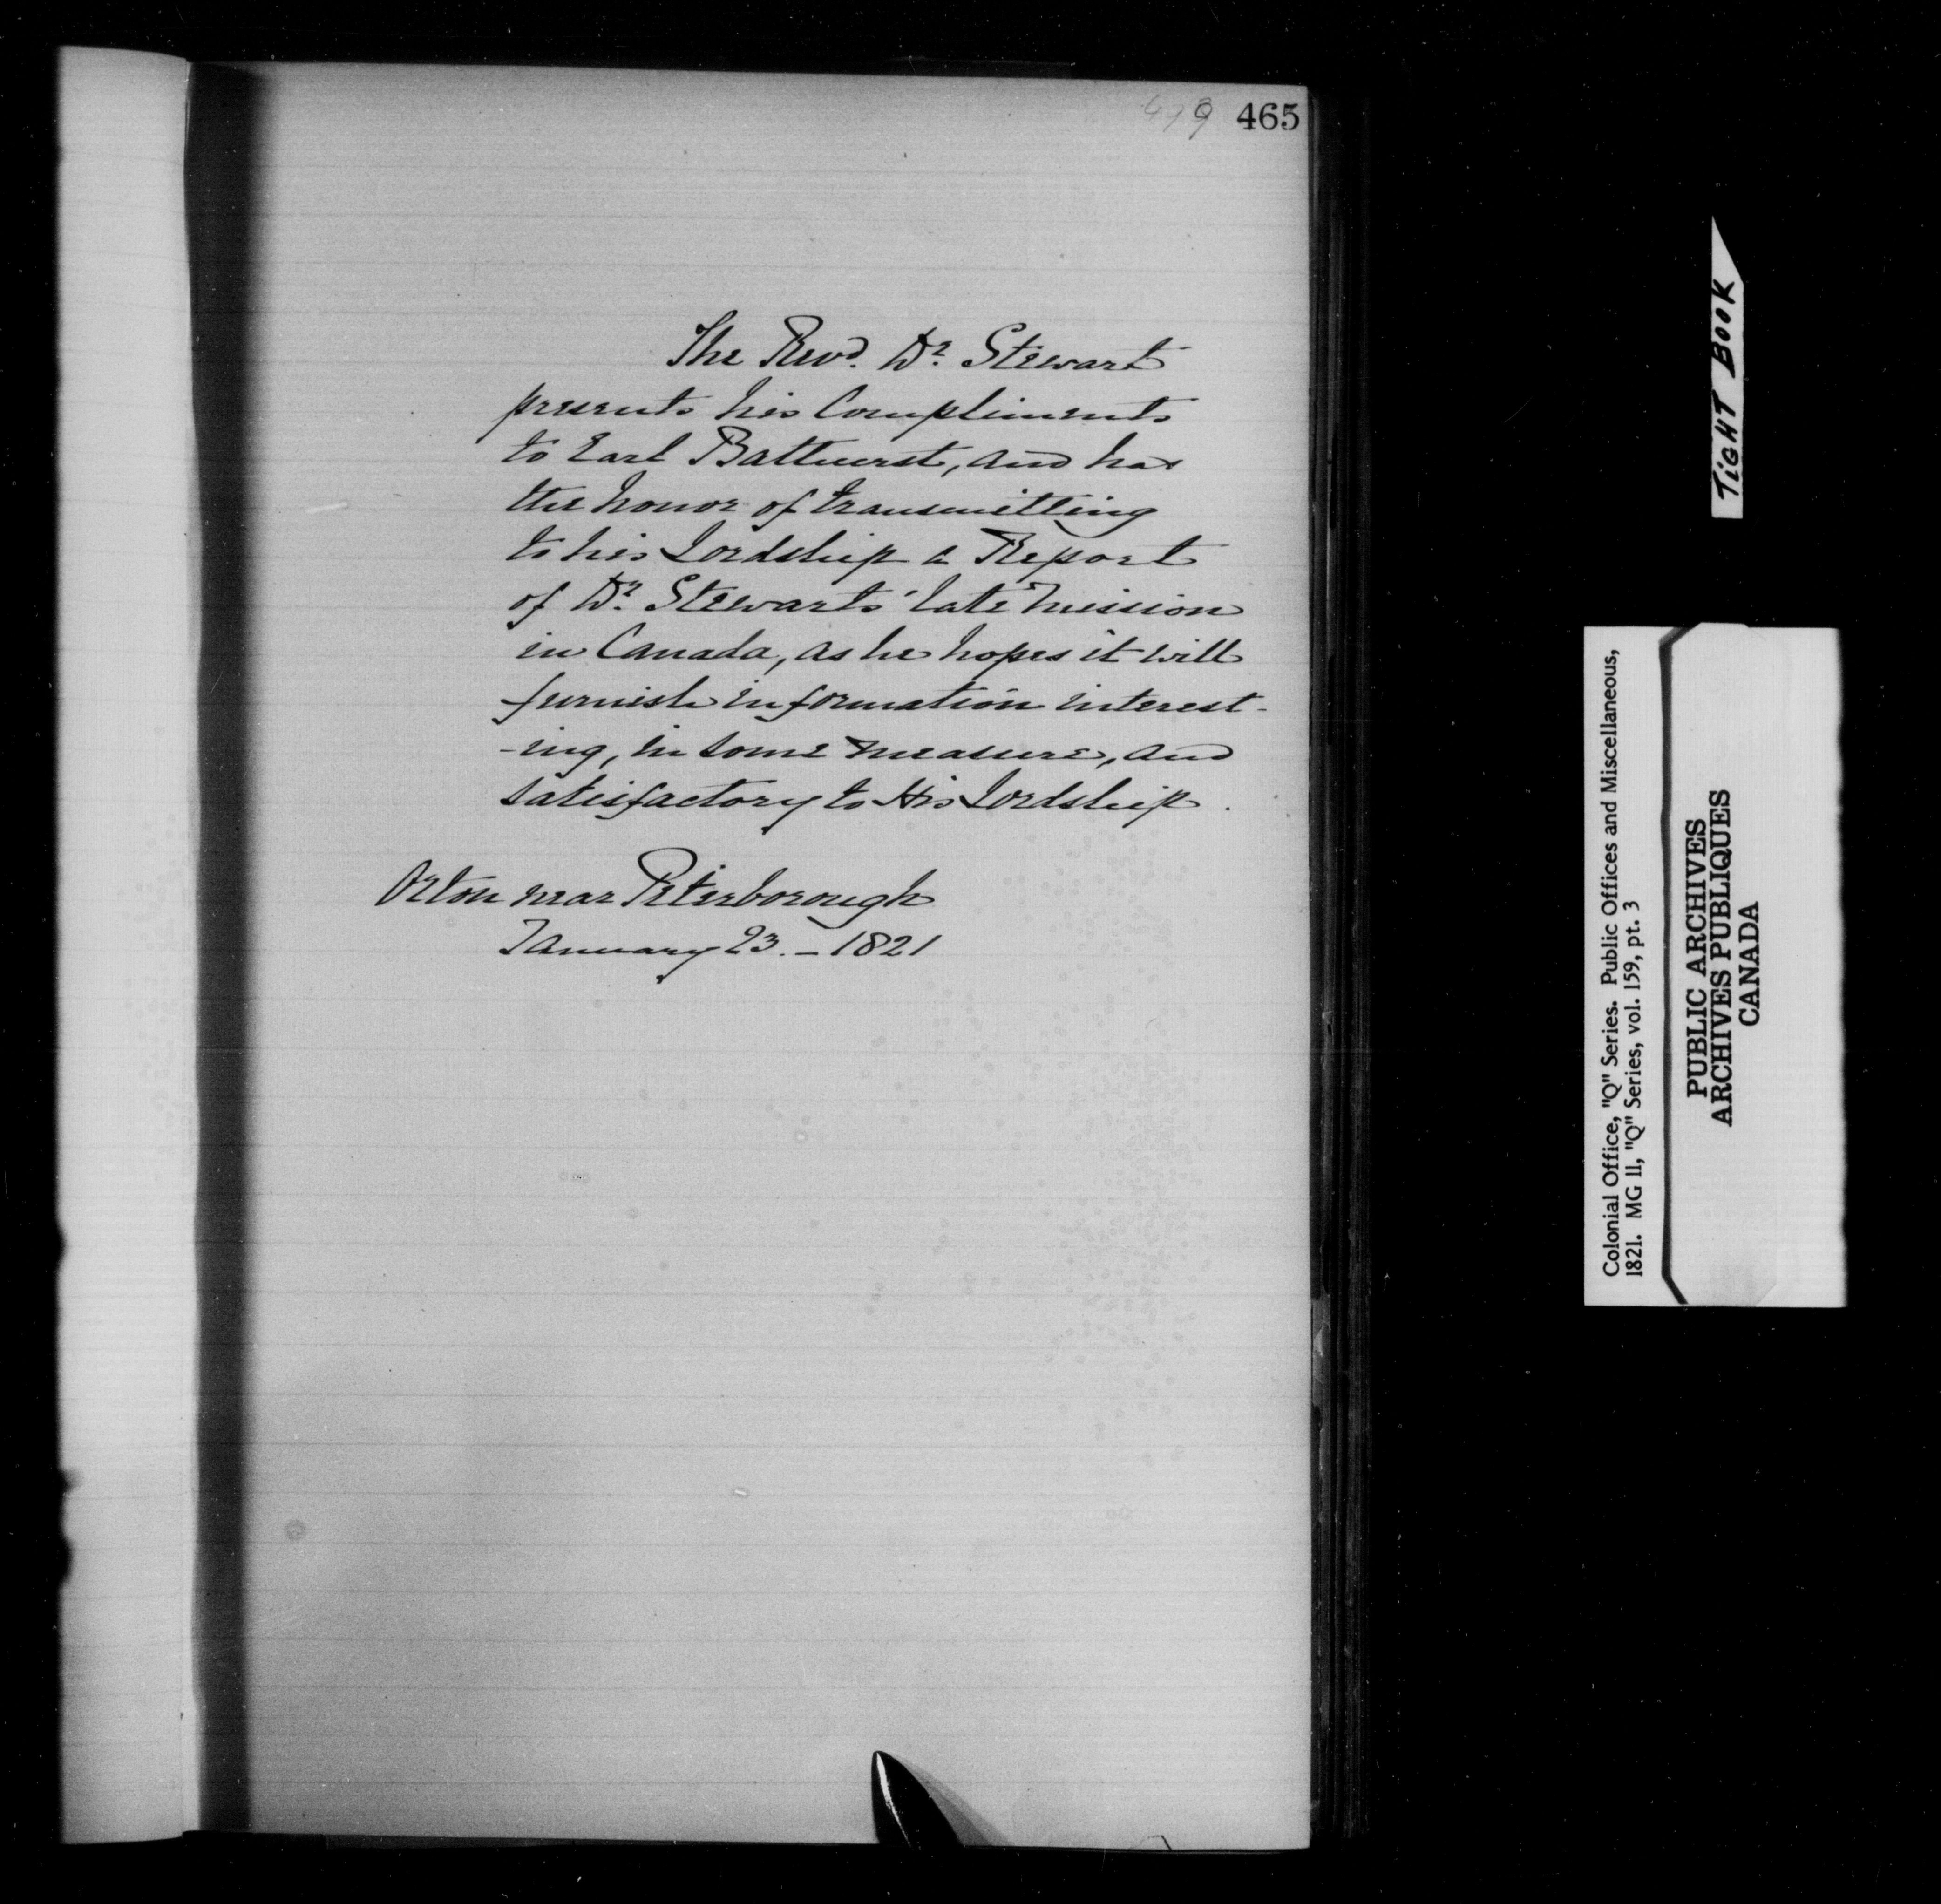 465
The Revd. Dr. Stewart
presents his Compliments
to Earl Bathurst, and has
the honor of transmitting
to his Lordship a Report
of Dr. Stewarts' late Mission
in Canada, as he hopes it will
furnish information interest-
-ing, in some measure, and
satisfactory to His Lordship.
Orton near Peterborough
January 23. - 1821
TiGHT BOOK
Colonial Office, "Q" Series. Public Offices and Miscellaneous,
1821. MG 11, "Q" Series, vol. 159, pt. 3
PUBLIC ARCHIVES
ARCHIVES PUBLIQUES
CANADA